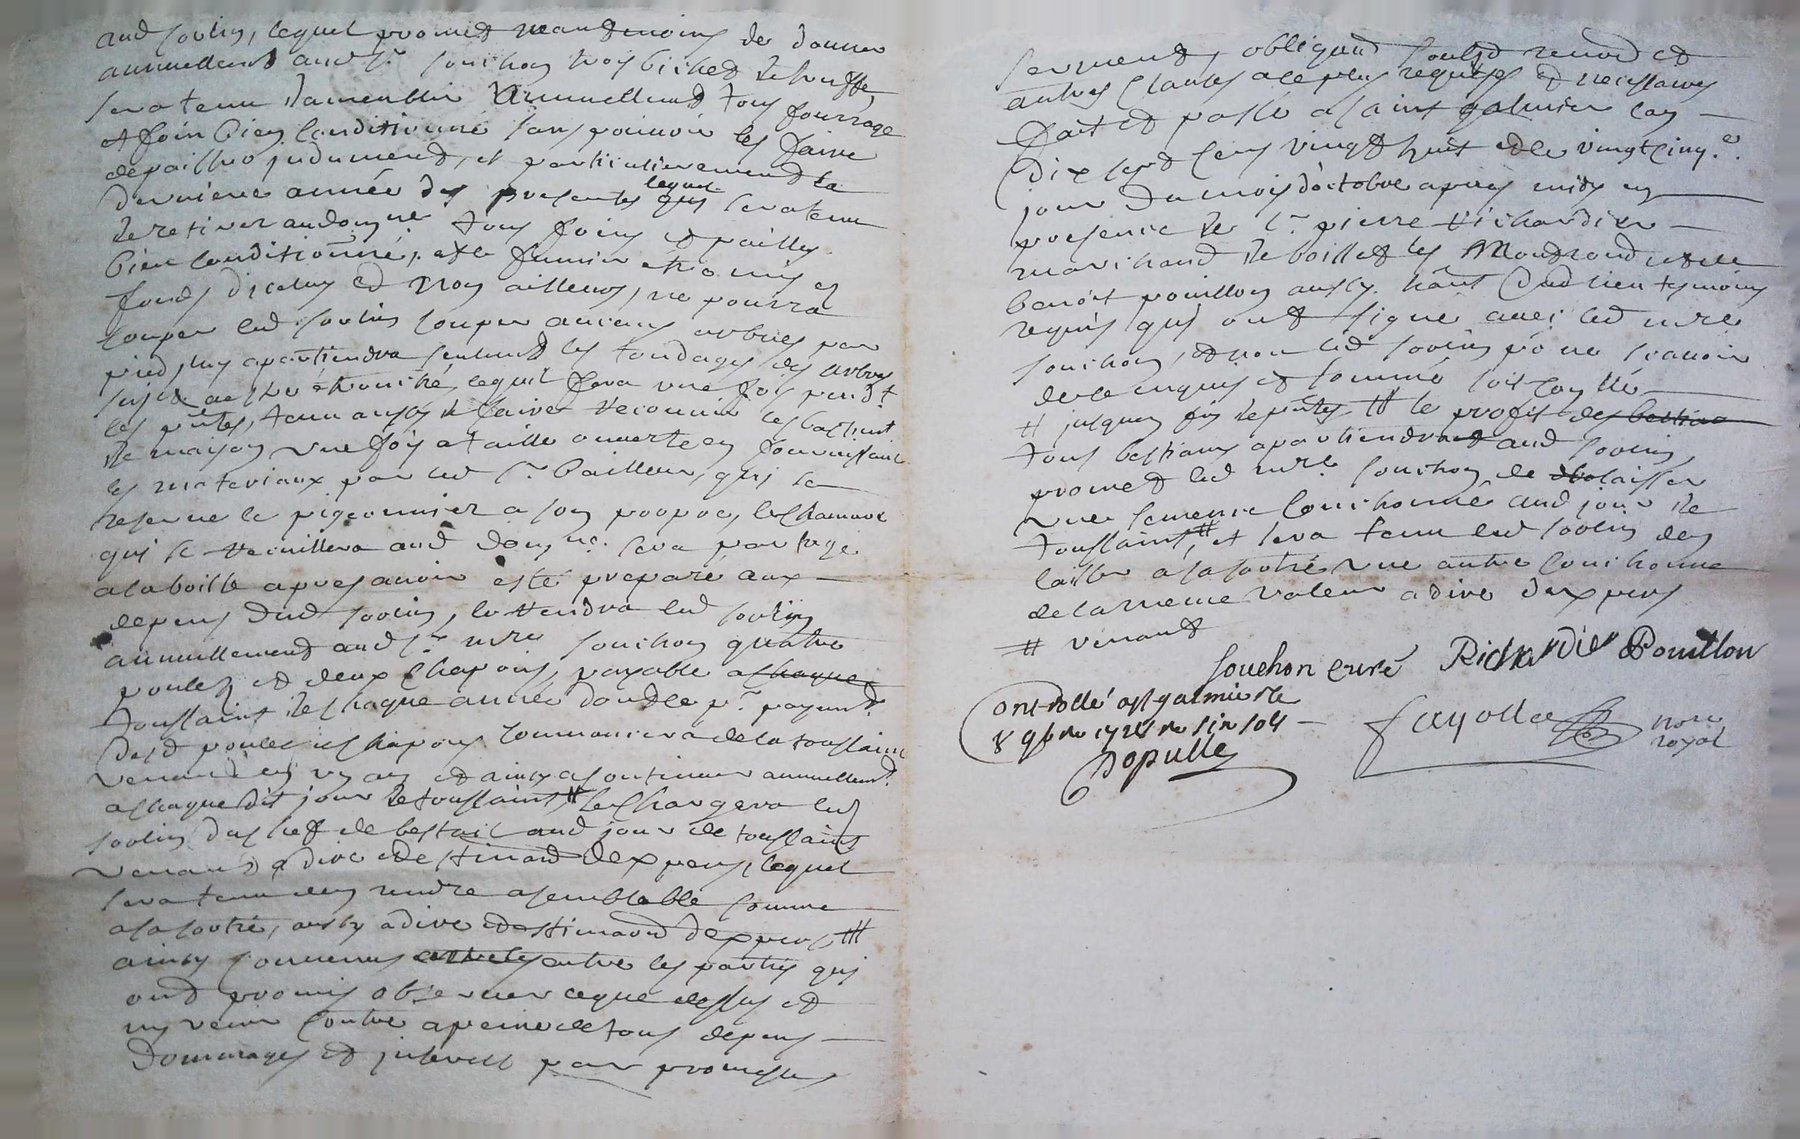 aud sorlin, lequel promet neantmoins de donner
annuellemt aud Sr souchon trois bichets de truffe,
sera tenu d'assembler annuellemt tous fourrage
et foin bien conditionné sans pouvoir les faire
dépaitre indument, et particulierement la
derniere année des presentes lequel sera tenu
de retirer aud domne tous foins et pailles
bien conditionné, et le fumier et à mis es
fonds diceluy et non ailleurs, ne pourra
couper led sorlin couper aucuns arbres par
pied, luy apartiendra seulemt les tondages des arbres
sujet a estre etronché, lequel fera une fois pendt
les pntes, tenu aussy de faire recouvrir les bastimt
de maison une fois a taille ouverte en fournissant
les materiaux par led Sr bailleur, qui se
reserve le pigeonnier a son propre, le chanvre
qui se recuillera aud domne sera partagé
a la boitte apres avoir esté preparé aux
depens dud sorlin, le rendra led sorlin
annuellement aud Sr mre souchon quatre
poulets et deux chapons, payable a chaque
toussaint de chaque année dont le pr payemt
desd poulet et chapons commancera de la toussaint
venant en un an et ainsy a continuer annuellemt
a chaque dit jour de toussaint # se chargera led
sorlin du chef de bestail aud jour de toussaint
venant a dire et destimaon dexpers, lequel
sera tenu den rendre a semblable somme
a la sortie, aussy a dire et destimaon dexpers #
ainsy convenus entre les partis qui
ont promis observer ceque dessus et
ny venir contre a peine de tous depens
dommages et interests par promesses
serment, obligaon soubd renon et
autres clauses a ce plus requises et necessaires
fait et passé a saint galmier lan
dix sept cens vingt huit et le vingt cinq.e
jour du mois d'octobre après midy en
presence de Sr pierre richardier
marchand de boisset les Montrond et de
benoit pouillon aussy hant dud lieu tesmoins
requis qui ont signé avec led mre
souchon, et non led sorlin po ne scavoir
de ce enquis et sommé soit conllé
# jusques fin des pntes # le profit des bestiau
tous bestiaux apartiendront aud sorlin,
promet led mre souchon de laisser
une semence couchonné aud jour de
toussaint #, et sera tenu led sorlin den
laisser a sa sortie une autre couchonne
de la meme valeur a dire dexpers
# venant
souchon curé Richardier Pouillon
Controllé a st galmier le
8 9bre 1728 re six sols
Dopulle
fayolle nore royal